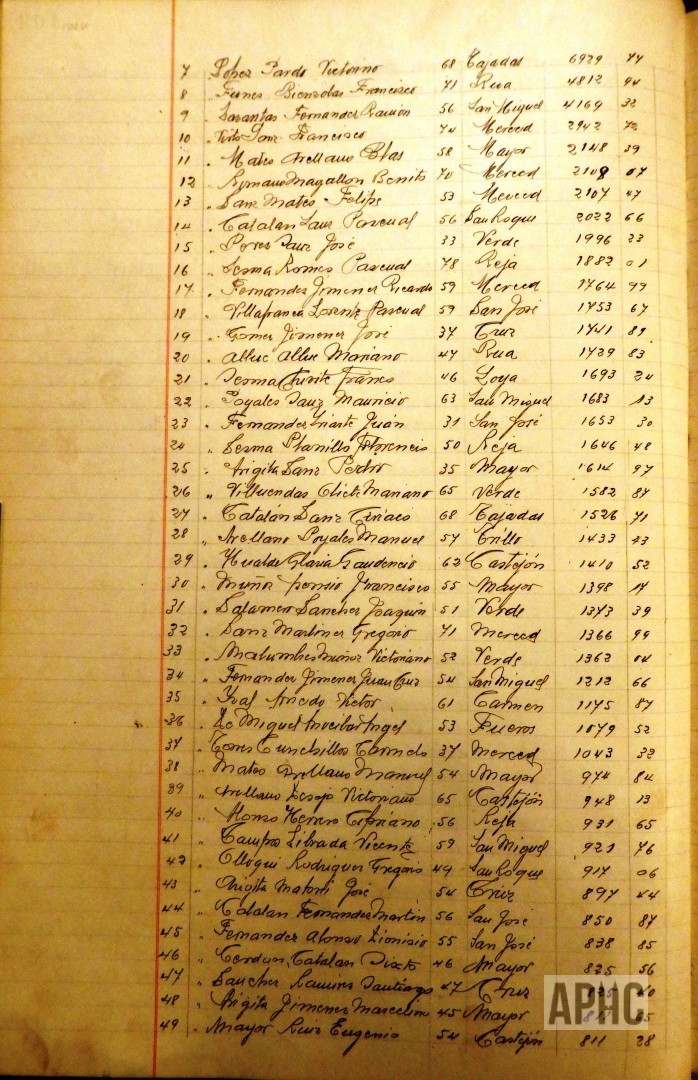 7 Lopez Pardo Victorino 68 Tajadas 6929 44
8 " Funes Bienzobas Francisco 71 Rua 4812 94
9 " Fernandez Ramón 56 San Miguel 4169 32
10 " Sanz Francisco 74 Merced 2942 72
11 . Mateo Arellano Blas 58 Mayor 2148 39
12 " Magallon Benito 70 Merced 2109 07
13 . Sanz Mateo Felipe 53 Merced 2107 47
14 . Catalan Sanz Pascual 56 San Roque 2022 66
15 " Perez Sanz José 33 Verde 1996 23
16 " Lerma Romeo Pascual 78 Reja 1882 01
17 . Fernandez Jimenez Ricardo 59 Merced 1764 99
18 " Villafranca Lorente Pascual 59 San José 1753 67
19 " Gomez Jimenez José 37 Cruz 1741 89
20 . Allue Allue Mariano 47 Rua 1729 83
21 . Franco 46 1693 24
22 . Poyales Sanz Mauricio 63 San Miguel 1683 13
23 . Fernandez Iriarte Juán 31 San José 1653 30
24 " Lerma Planillo Florencio 50 Reja 1646 48
25 . Angita Sanz Pedro 35 Mayor 1614 97
26 " Villuendas Mariano 65 Verde 1582 87
27 . Catalán Sanz Ciriaco 68 Tajadas 1526 71
28 " Arellano Poyales Manuel 57 Trillo 1433 23
29 . Hualde Gloria Gaudencio 62 Castejón 1410 52
30 " Muñoz Francisco 55 Mayor 1398 14
31 . Salamero Sanchez Joaquin 51 Verde 1373 39
32 " Sanz Martinez Gregorio 71 Merced 1366 99
33 . Malumbres Muñoz Victoriano 52 Verde 1362 04
34 " Fernandez Jimenez Juan Cruz 54 San Miguel 1212 66
35 " Victor 61 Carmen 1175 87
36 " De Miguel Angel 53 Fueros 1079 52
37 " Cunchillos 37 Merced 1043 32
38 " Mateo Arellano Manuel 54 Mayor 974 84
39 " Arellano Victoriano 65 Castejón 948 13
40 " Alonso Herrero Cipriano 56 Reja 931 65
41 " Campos Librada Vicente 59 San Miguel 921 76
42 " Olloqui Rodriguez Gregorio 49 San Roque 917 06
43 " Angita José 54 Cruz 897 44
44 " Catalan Fernandez Martin 56 San José 850 87
45 " Fernandez Alonso Dionisio 55 San José 838 85
46 " Catalan Sixto 46 Mayor 825 56
47 " Sanchez Ramirez Santiago 47 Cruz
48 " Angita Jimenez Marcelino 45 Mayor
49 " Mayor Ruiz Eugenio 54 Castejón 811 28
APHC